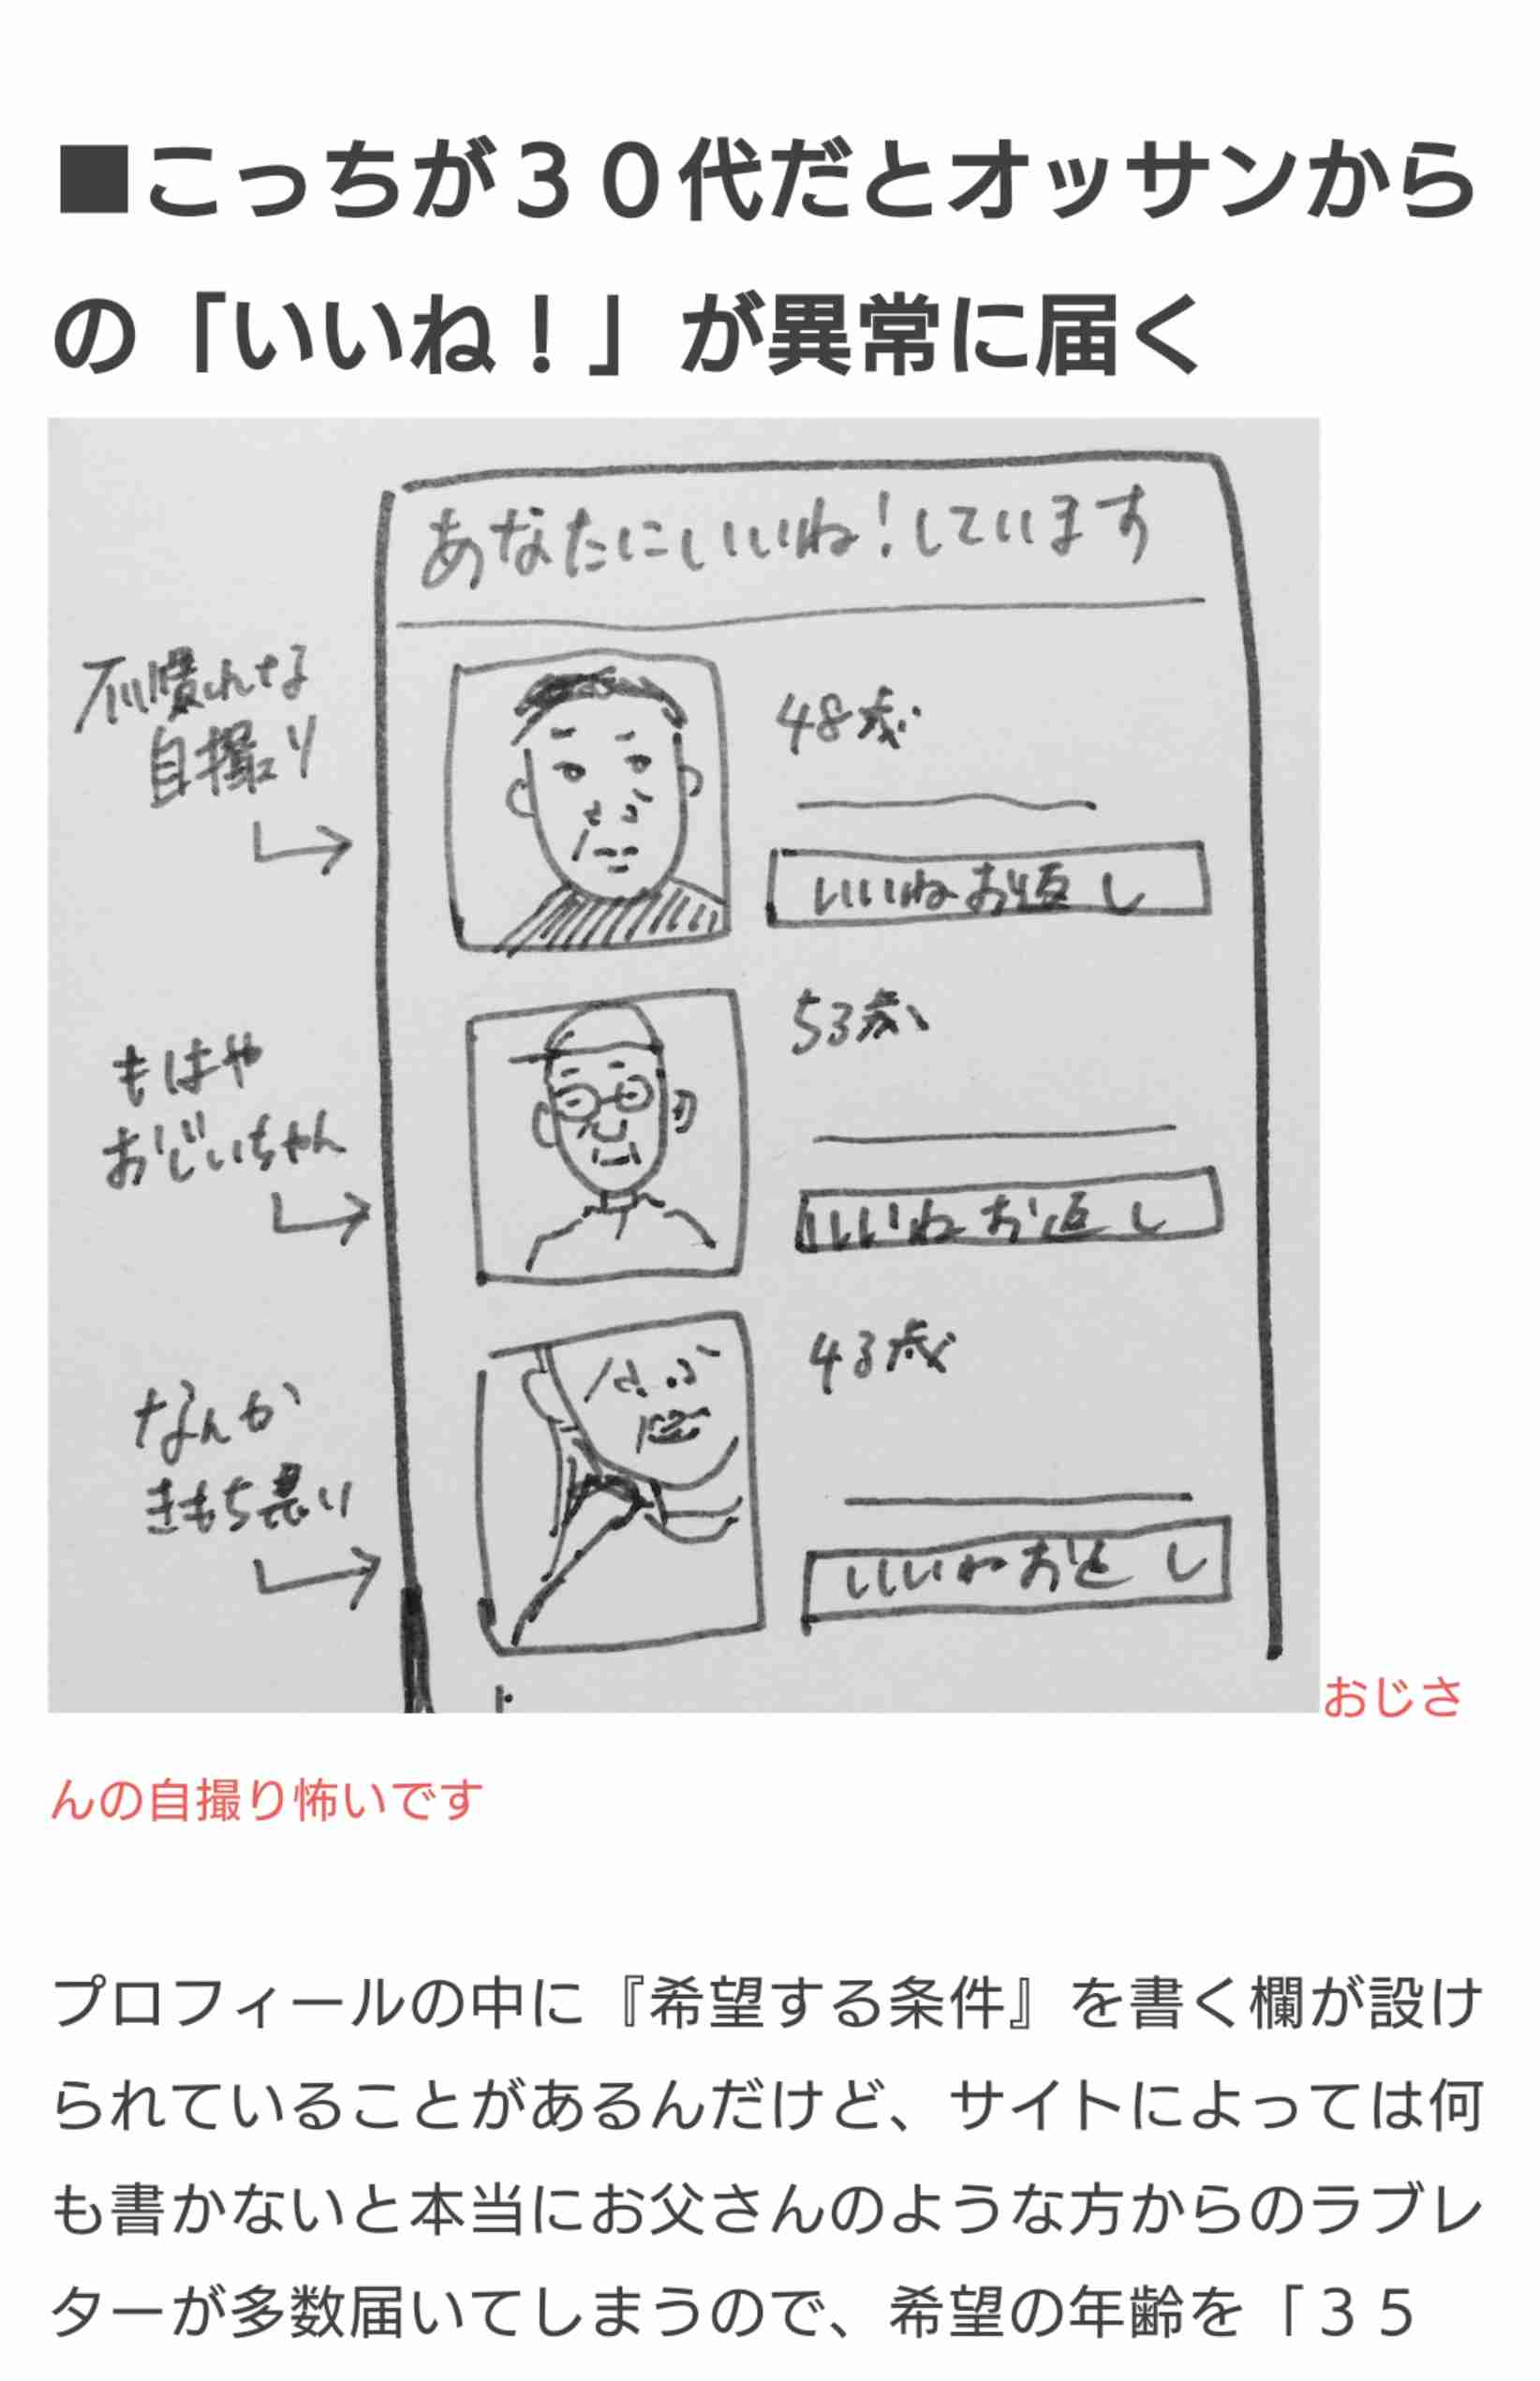 ■こっちが３０代だとオッサンから
の「いいね！」が異常に届く
あなたにいいね！しています
不慣れな
自撮り
48歳
いいねお返し
もはや
おじいちゃん
53歳
いいねお返し
なんか
きもち悪い
43歳
いいねお返し
おじさ
んの自撮り怖いです
プロフィールの中に『希望する条件』を書く欄が設け
られていることがあるんだけど、サイトによっては何
も書かないと本当にお父さんのような方からのラブレ
ターが多数届いてしまうので、希望の年齢を「３５